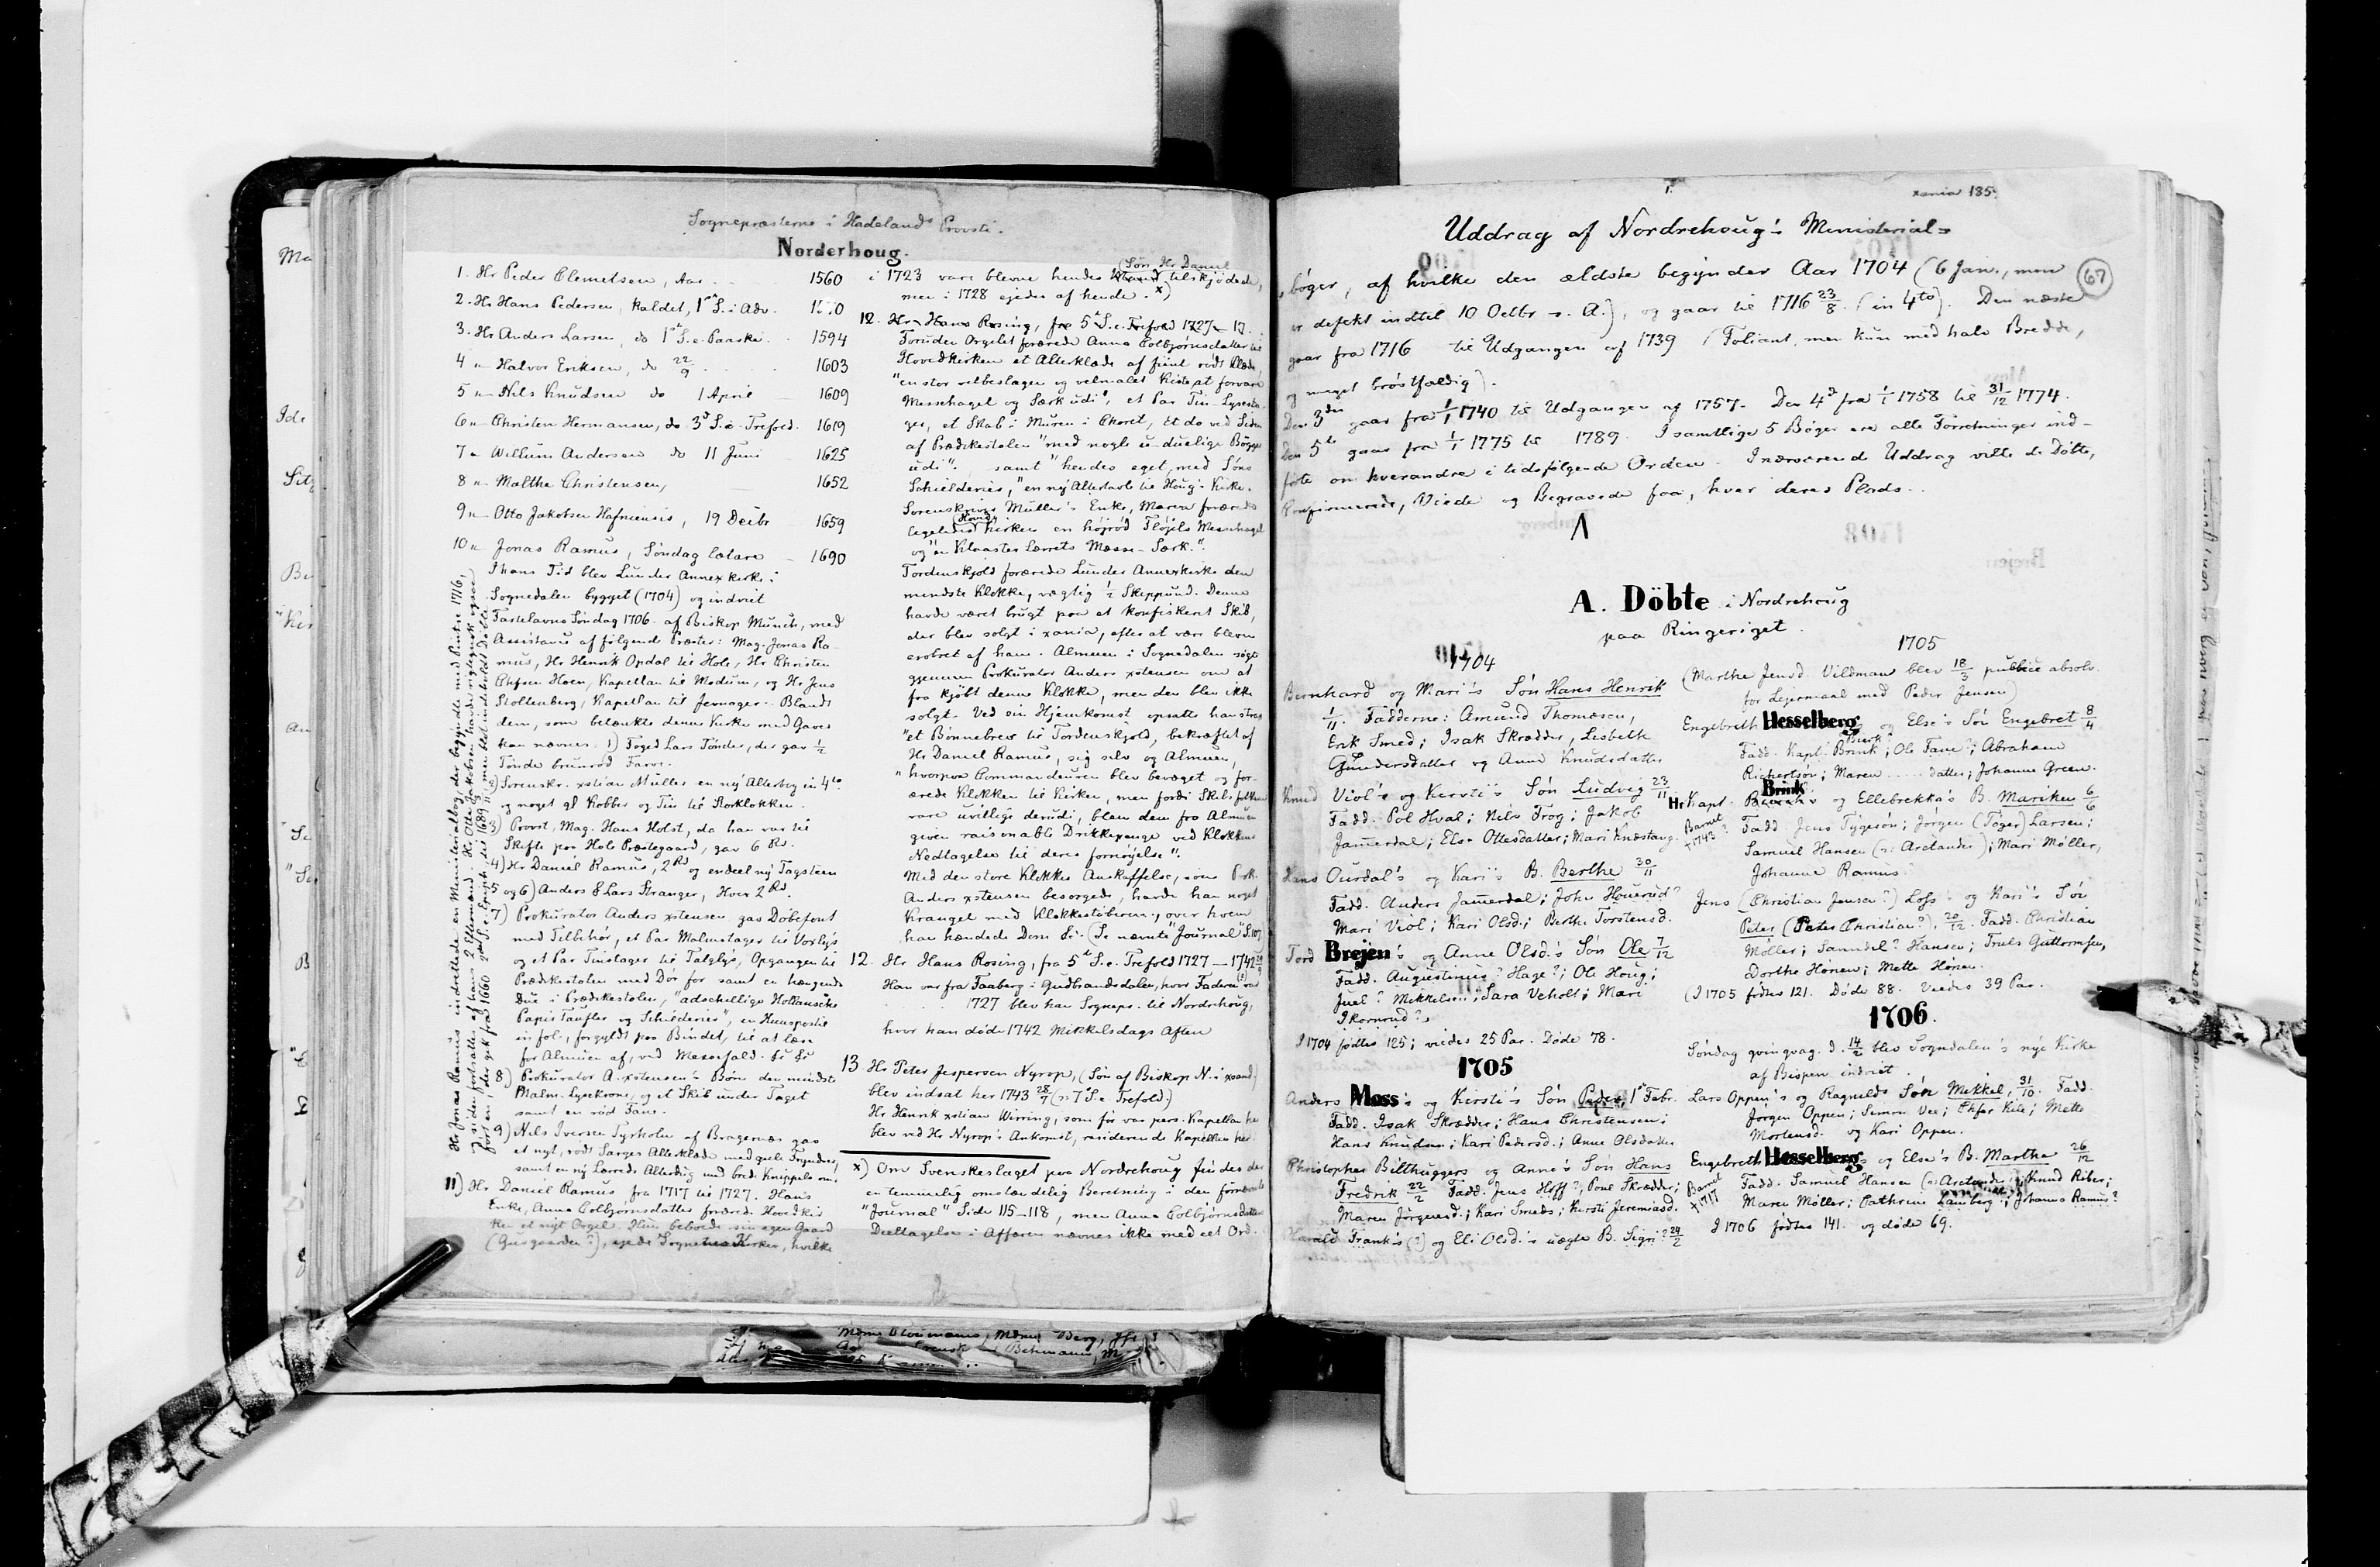 Sognepræsterne i Hadelands Provsti.
Norderhoug.
1. Hr Peder Clemetsen, Aar 1560
2. Hr Hans Pedersen, kaldet, 1ste S. i Adv.
3. Hr Anders Larsen, do 1st S. e. Paaske 1594
4 " Halvor Eriksen, do 22/9 1603
5 " Nils Knudsen do 1 April 1609
6 " Christen Hermansen, do. 3d S. e. Trefold. 1619
7 " Willum Andersen do 11 Juni 1625
8 " Malthe Christensen, 1652
9 " Otto Jakobsen Hafniensis, 19 Decbr 1659
10 " Jonas Ramus, Søndag lætare 1690
I hans Tid blev Lunder Annexkirke i
Sognedalen bygget (1704) og indviet
Fastelavns Søndag 1706 af Biskop Munch, med
Assistance af følgende Præster: Mag. Jonas Ra-
mus, Hr Henrik Opdal til Hole, Hr Christen
Hoen, Kapellan til Modum, og Hr Jens
Stoltenberg, Kapellan til Jevnager. Blandt
dem, som betænkte denne Kirke med Gaver
kan nævnes: 1) Foged Lars Tønder, der gav 1/2
Tønde brunrød Farve.
2) Sorenskr. xstian Müller en ny Alterbog in 4to
og noget gl Kobber og Tin til Storklokken.
3) Provst, Mag. Hans Holst, da han var til
Skifte paa Hole Præstegaard, gav 6 Rd.
4) Hr Daniel Ramus, 2 Rd og endeel ny Tagsteen
5 og 6) Anders & Lars Stranger, Hver 2 Rd.
7) Prokurator Anders xstensen gav Døbefont
med Tilbehør, et Par Malmstager til Voxlys
og et Par Tinstager til Talglys, Opgangen til
Prædikestolen med Dør for samt en hængende
Due i Prædikestolen, "adschellige Hollandske
Papir Taufler og Schilderier", en Huuspostil
in fol., forgyldt paa Bindet, til at læse
for Almuen af, ved Messefald.
8) Prokurator A. xstensens Børn den mindste
Malm-Lysekrone, og et Skib under Taget
samt en rød Fane.
9) Nils Iversen Tyrholm af Bragernæs gav
et nyt, rødt Sarges Alterklæde med gule Fryndser,
samt en ny Lærreds Alterdug med brede Knippler om.
11) Hr Daniel Ramus fra 1717 til 1727. Hans
Enke, Anna Colbjørnsdatter forærede Hovedkir
ken et nyt Orgel. Hun beboede sin egen Gaard
(Gusgaarden?), ejede Sognets Kirker, hvilke
Hr Jonas Ramus indrettede en Ministerialbog, der begyndte med Pintse 1716,
i 1723 vare blevne hendes (Søn Hr Daniel tilskjødede,
men i 1728 ejedes af hende. x)
12. Hr Hans Rosing, fra 5te S. e. Trefold 1727 - 17
Foruden Orgelet forærede Anna Colbjørnsdatter til
Hovedkirken et Alterklæde af fiint rødt Klæde,
"en stor velbeslagen og velmalet Kiste, at forvare
Messehagel og Særk udi", et Par Tin-Lysesta-
ger, et Skab i Muren i Choret, Et do ved Siden
af Prædikestolen "med nogle u-duelige Bøger
udi", samt "hendes eget med Søns
Schielderier", "en ny Altertavle til Houg-Kirke.
Sorenskriver Müller's Enke, Maren forærede
ligeled. Hovedkirken en højrød Fløjels Messehagel
og "en Klaastes Lærrets Mæsse-Særk."
Tordenskjold forærede Lunder Annexkirke den
mindste Klokke, vægtig 1/2 Skippund. Denne
havde været brugt paa et konfiskeret Skib,
der blev solgt i xania, efter at være bleven
erobret af ham. Almuen i Sognedalen søgte
gjennem Prokurator Anders xstensen om at
faa kjøbt denne Klokke, men den blev ikke
solgt. Ved sin Hjemkomst opsatte han strax
"et Bønnebrev til Tordenskjold, bekræftet af
Hr Daniel Ramus, sig selv og Almuen,
"hvorpaa Commandeuren blev bevæget og for-
ærede Klokken til Kirken, men fordi Skibsfolkene
vare uvillige derudi, blev dem fra Almuen
given raisonable Drikkepenge ved Klokkens
Nedtagelse til deres fornøyelse".
Med den store Klokkes Anskaffelse, som Prok.
Anders xstensen besorgede, havde han noget
Krangel med Klokkestøberen, over hvem
han hændede Dom. (Se nævnte "Journal" S. 107)
12. Hr Hans Rosing, fra 5te S. e. Trefold 1727 — 1742
Han var fra Faaberg i Gudbrandsdalen, hvor Faderen var
1727 blev han Sognepr. til Nordrehoug,
hvor han døde 1742 Mikkelsdags Aften
13 Hr Peter Jespersen Nyrop, (Søn af Biskop N. i xsand)
blev indsat her 1743 28/7 (: 7 S. e. Trefold.)
Hr Henrik xstian Wirring, som før var pers. Kapellan her
blev ved Hr Nyrop's Ankomst, residerende Kapellan her.
x) Om Svenskeslaget paa Nordrehoug findes der
en temmelig omstændelig Beretning i den førnævnte
"Journal" Side 115—118, men Anna Colbjørnsdatters
Deeltagelse i Affæren nævnes ikke med eet Ord.
xania 185
67
Uddrag af Nordrehoug's Ministerial=
bøger, af hvilke den ældste begynder Aar 1704 (6 Jan., men
er defekt indtil 10 Octbr s. A.), og gaar til 1716 23/8. (in 4to). Den næste
gaar fra 1716 til Udgangen af 1739 (Foliant, men kun med halv Bredde,
og meget brøstfældig).
Den 3die gaar fra 1/1 1740 til Udgangen af 1757. Den 4d fra 1/1 1758 til 31/12 1774.
Den 5te gaar fra 1/1 1775 til 1789. I samtlige 5 Bøger ere alle Forretninger ind-
førte om hverandre i tidsfølgende Orden. Nærværende Uddrag ville de Døbte,
Konfirmerede, Viede og Begravede faa, hver deres Plads.
A. Döbte i Nordrehoug
paa Ringeriget.
1704
Bernhard og Mari's Søn Hans Henrik
1/11. Fadderne: Amund Thomæsen,
Erik Smed; Isak Skrædder, Lisbeth
Gundersdatter og Anne Knudsdatter
Knud Viol's og Kersti's Søn Ludvig 23/11
Fadd. Pol Hval; Nils Frog; Jakob
Jamerdal; Else Ottesdatter; Mari Knæstang.
Hans Ourdal's og Kari's B. Berthe 30/11
Fadd. Anders Jamerdal; John Houerud?
Mari Viol; Kari Olsd.; Berthe Torstensd.
Tord Brejen's og Anne Olsd.'s Søn Ole 7/12
Fadd. Augustinus? Hage?; Ole Houg;
Juel? Mikkelsen; Sara Veholt; Mari
Ikornrud?
I 1704 fødtes 125; viedes 25 Par. Døde 78.
1705
Anders Moss's og Kersti's Søn Peder, 1ste Febr.
Fadd. Isak Skrædder; Hans Christensen;
Hans Knudsen; Kari Pedersd.; Anne Olsdatter
Christopher Bilthuggers og Anne's Søn Hans
Fredrik 22/2 Fadd. Jens Hoff?; Poul Skrædder;
Maren Jörgensd.; Kari Smeds; Kersti Jeremiasd.
Harald Frank's (?) og Eli Olsd.'s uægte B. Sigri? 24/2
1705
(Marthe Jensd. Vildman blev 18/3 publice absolv.
for Lejermaal med Peder Jensen)
Engebreth Hesselberg og Else's Søn Engebret 8/4
Fadd. Kapt. Brink; Ole Fane?; Abraham
Richertsøn; Maren ..... datter; Johanne Green.
Hr Kapt. Brink og Ellebrekka's B. Mariken 6/6
Barnet † 1743?
Fadd. Jens Tygesøn; Jørgen (Töger) Larsen;
Samuel Hansen (: Arctander); Mari Møller,
Johanne Ramus?
Jens (Christian Jensen?) Loss's og Kari's Søn
Peter (Peter Christian?), 20/12. Fadd. Christian
Møller; Samuel? Hansen; Truls Guttormsen,
Dorthe Hønen; Mette Hønen.
(I 1705 fødtes 121. Døde 88. Viedes 39 Par.
1706.
Søndag qvinqvag. d. 14/2 blev Sogndalen's nye Kirke
af Bispen indviet.
Lars Oppen's og Ragnilds Søn Mikkel, 31/10. Fadd.
Jörgen Oppen; Simon Vee; Mette
Mortensd. og Kari Oppen.
Engebreth Hesselberg's og Else's B. Marthe 26/12
Barnet † 1717
Fadd. Samuel Hansen (: Arctander); Knud Riber;
Maren Møller; Cathrine Lanberg?; Johanna Ramus?
I 1706 fødtes 141. og døde 69.